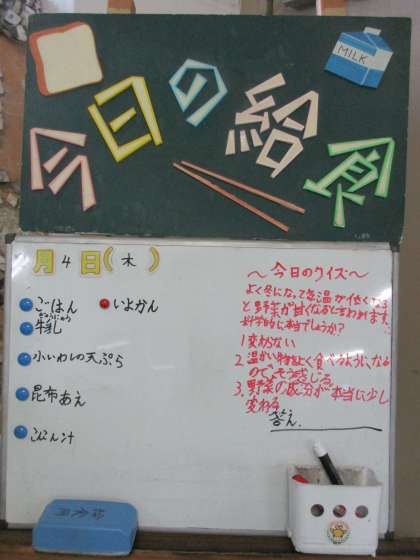 今日の給食
MILK
月4日(木)
ごはん
いよかん
ぎゅうにゅう
牛乳
小いわしの天ぷら
昆布あえ
こんこん汁
～今日のクイズ～
よく冬になって気温が低くなる
と野菜が甘くなると言われます。
科学的に本当でしょうか?
1 変わらない
2. 温かい物をよく食べるようになる
ので、そう感じる
3. 野菜の成分が本当に少し
変わる
答え.